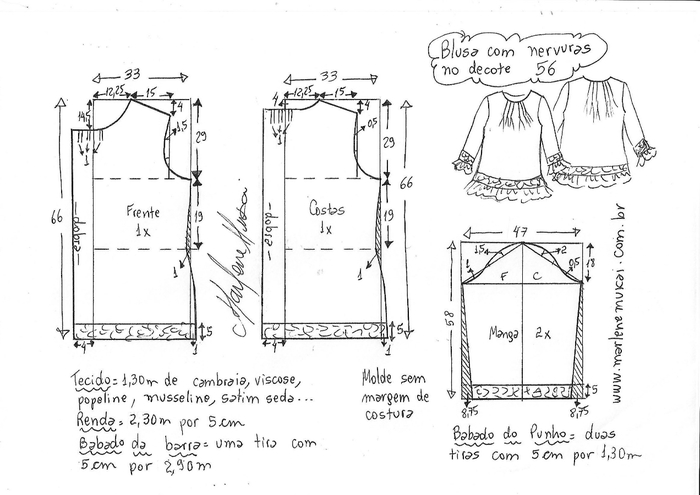 Blusa com nervuras
no decote 56
33
12,25
15
4
14,5
1,5
1
29
66
19
Frente
1x
dobra
1
5
4
1
Marlene Mukai
33
4
12,25
15
4
0,5
1
29
66
19
Costas
1x
dobra
1
5
4
1
47
1,5
2
1
0,5
18
F
C
58
Manga 2x
5
8,75
8,75
www.marlenemukai.com.br
Tecido = 1,30m de cambraia, viscose,
popeline, musseline, satim seda...
Renda = 2,30m por 5cm
Babado da barra = uma tira com
5cm por 2,90m
Molde sem
margem de
costura
Babado do Punho = duas
tiras com 5cm por 1,30m